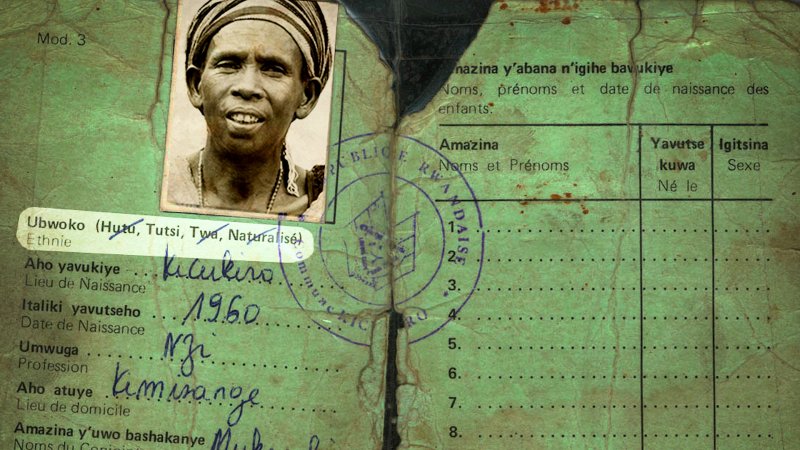 Mod. 3
Ubwoko (Hutu, Tutsi, Twa, Naturalisé)
Ethnie
Aho yavukiye Kicukiro
Lieu de Naissance
Italiki yavutseho 1960
Date de Naissance
Umwuga
Profession
Aho atuye Kimisange
Lieu de domicile
Amazina y'uwo bashakanye
Noms du
Amazina y'abana n'igihe bavukiye
Noms, prénoms et date de naissance des
enfants.
Amazina Yavutse Igitsina
Noms et Prénoms kuwa Sexe
Né le
1.
2.
3.
4.
5.
6.
7.
8.
RÉPUBLIQUE RWANDAISE